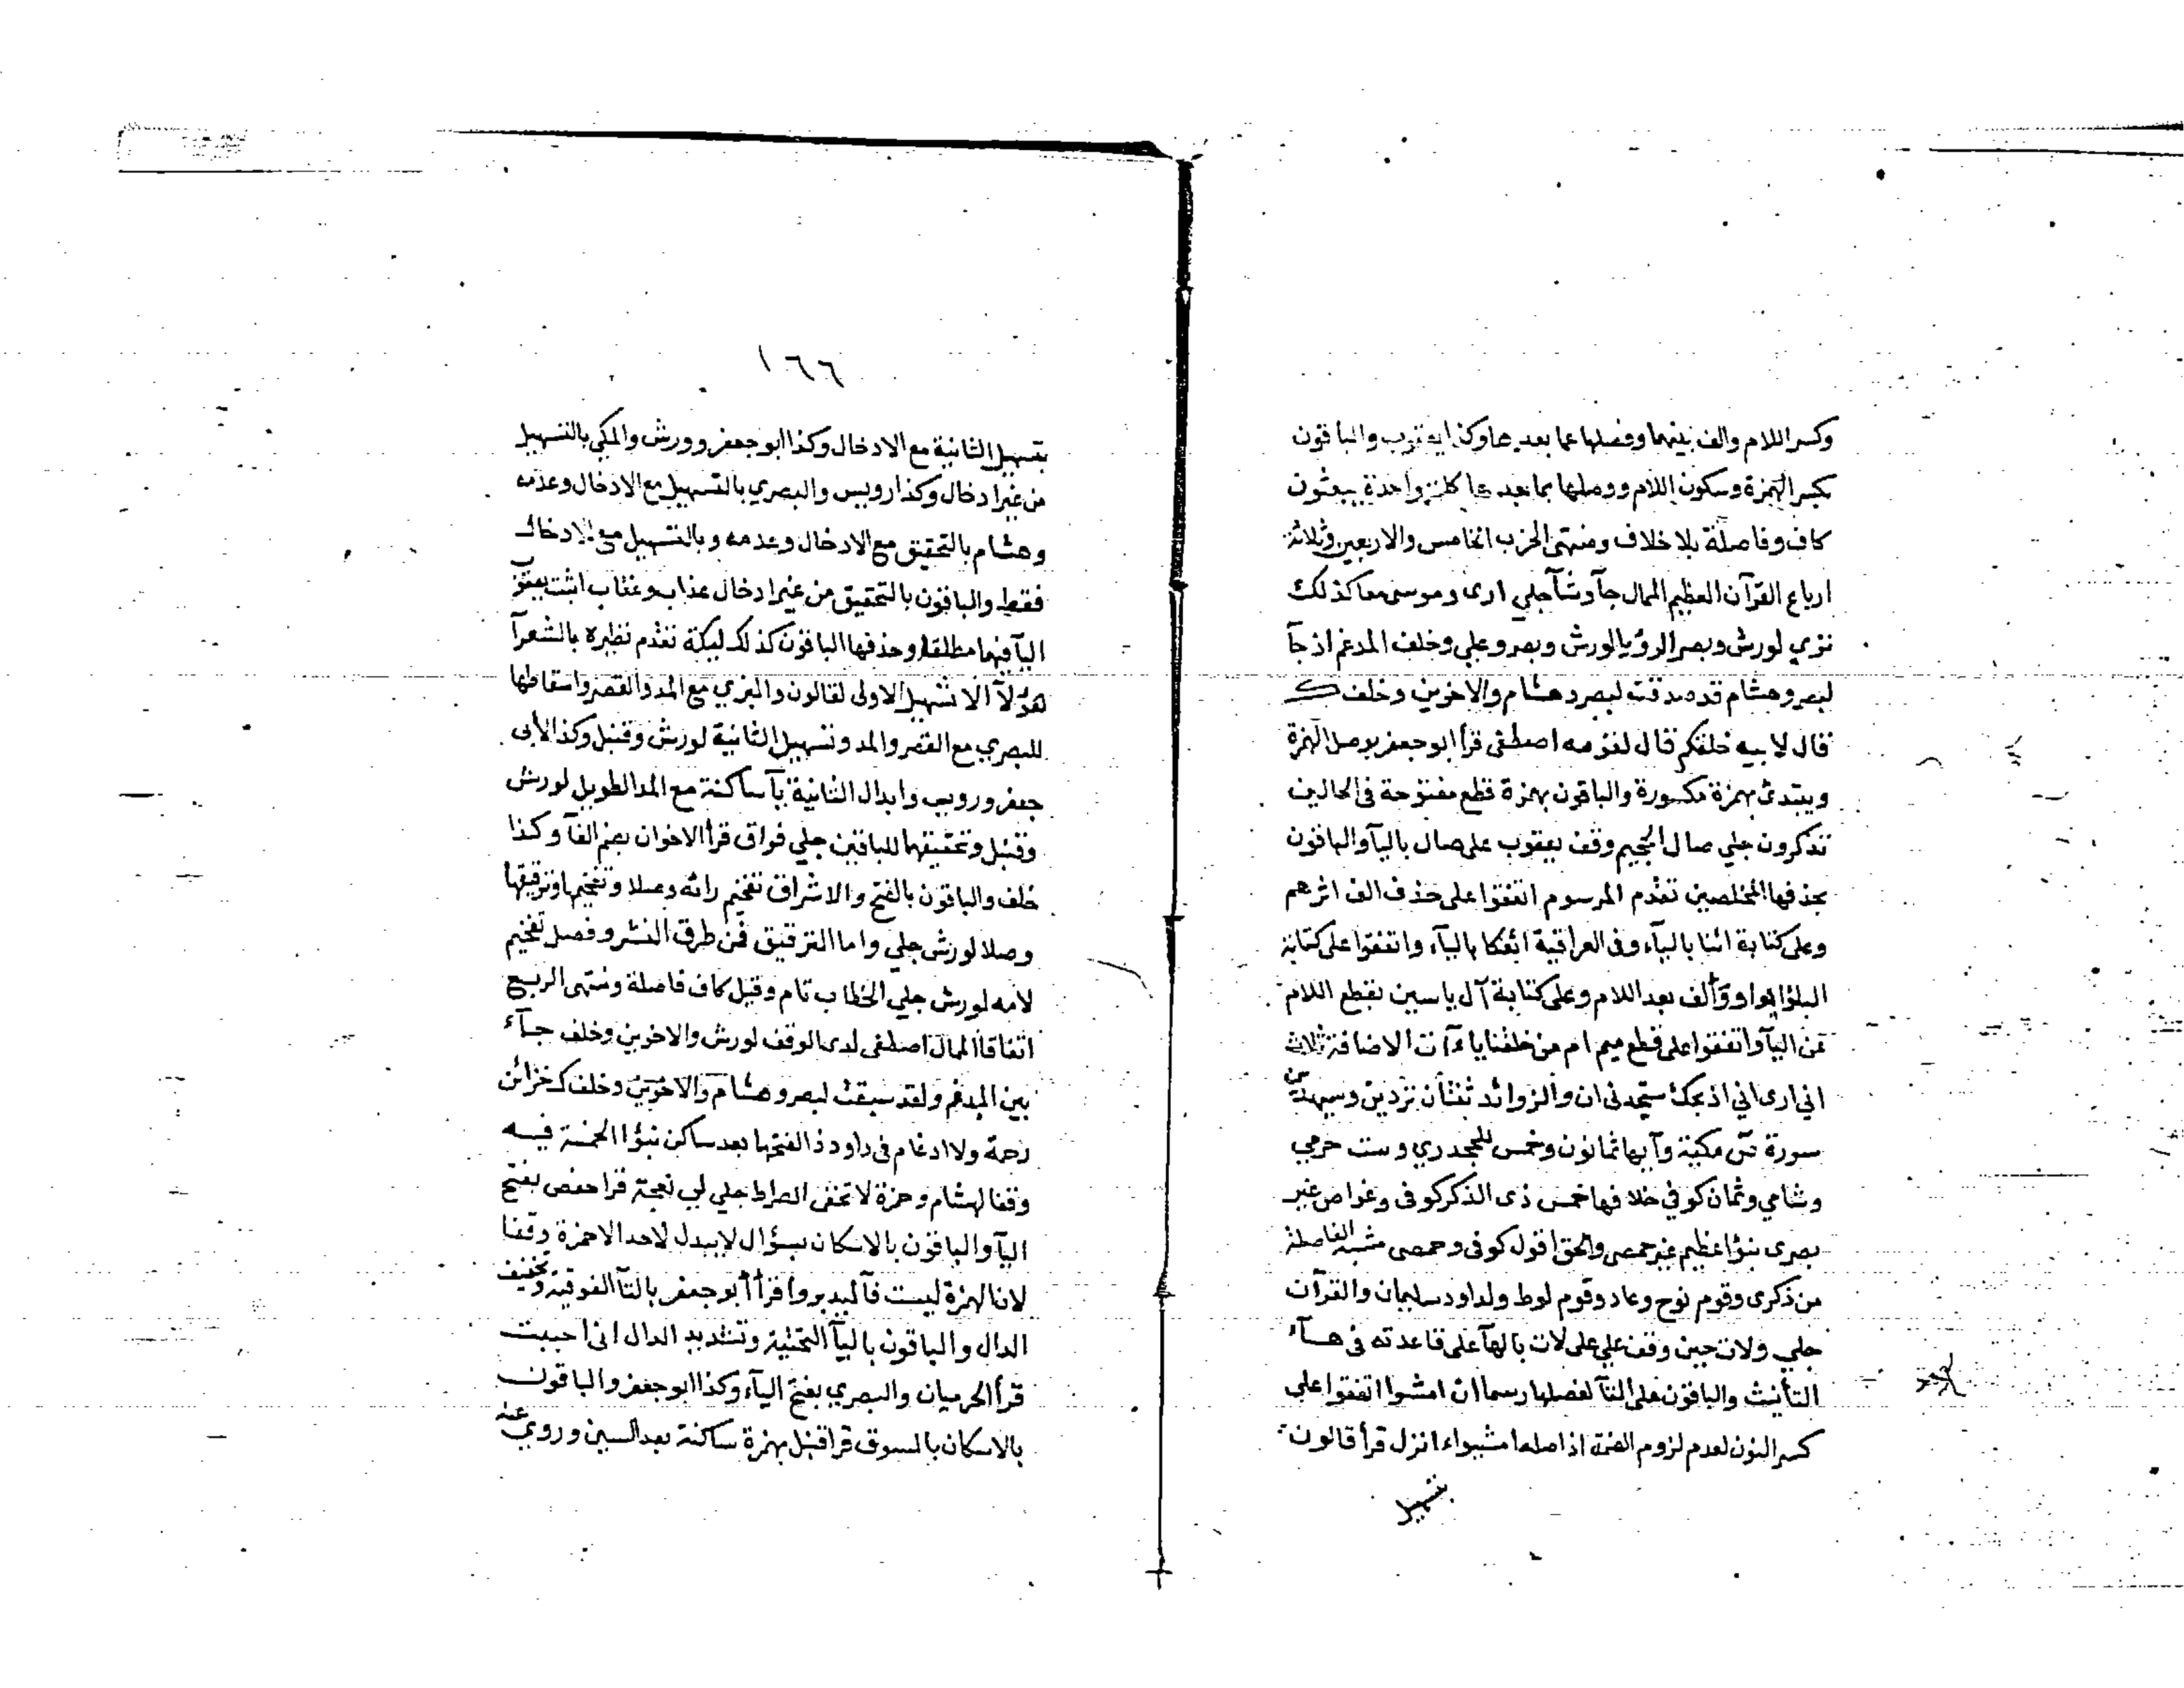 وكسر اللام والف بينهما وفصلها عما بعدها وكذا يعقوب والباقون
بكسر الهمزة وسكون اللام ووصلها بما بعدها كلمة واحدة يبعثون
كاف وفاصلة بلا خلاف ومنتهى الحزب الخامس والاربعين وثلاثة
ارباع القرآن العظيم الممال جآ وشآ جلي ارى وموسى معا كذلك
نزى لورش وبصر الرؤيا لورش وبصر وعلي وخلف المدغم اذ جآ
لبصر وهشام قد صدقت لبصر وهشام والاخوين وخلف ك
قال لابيه خلقكم قال لقومه اصطفى قرأ ابو جعفر بوصل الهمزة
ويبتدئ بهمزة مكسورة والباقون بهمزة قطع مفتوحة في الحالين
تذكرون جلي صال الجحيم وقف يعقوب على صال باليآ والباقون
بحذفها المخلصين تقدم المرسوم اتفقوا على حذف الف اثرهم
وعلى كتابة ائنا باليآء وفي العراقية ائفكا باليآء واتفقوا على كتابة
البلؤا بواو والف بعد اللام وعلى كتابة آل ياسين بقطع اللام
من اليآ واتفقوا على قطع ميم ام من خلقنا ياءآت الاضافة ثلاث
اني ارى اني اذبحك ستجدني ان والزوائد ثنتان تردين وسيهدين
سورة ص مكية وآيها ثمانون وخمس للجحدري وست حرمي
وشامي وثمان كوفي خلافها خمس ذى الذكر كوفى وغواص غير
بصرى نبؤا عظيم غير حمصى والحق اقول كوفى وحمصى مشبه الفاصلة
من ذكرى وقوم نوح وعاد وقوم لوط ولداود سليمان والقرآن
جلي ولات حين وقف علي على لات بالهآ على قاعدته في هــآء
التأنيث والباقون على التآ لفصلها رسما ان امشوا اتفقوا على
كسر النون لعدم لزوم الضمة اذ اصلها امشيوا ءانزل قرأ قالون
بتسهيل
١٦٦
بتسهيل الثانية مع الادخال وكذا ابو جعفر وورش والمكي بالتسهيل
من غير ادخال وكذا رويس والبصري بالتسهيل مع الادخال وعدمه
وهشام بالتحقيق مع الادخال وعدمه وبالتسهيل مع الادخال
فقط والباقون بالتحقيق من غير ادخال عذاب وعقاب اثبت يعقوب
اليآ فيهما مطلقا وحذفها الباقون كذلك ليكة تقدم نظيره بالشعرآ
هؤلآ الا تسهيل الاولى لقالون والبزي مع المد والقصر واسقاطها
للبصري مع القصر والمد وتسهيل الثانية لورش وقنبل وكذا لأبى
جعفر ورويس وابدال الثانية يآ ساكنة مع المد الطويل لورش
وقنبل وتحقيقهما للباقين جلي فواق قرأ الاخوان بضم الفآ وكذا
خلف والباقون بالفتح والاشراق تفخيم رائه وصلا وتفخيمها وترقيقها
وصلا لورش جلي واما الترقيق فمن طرق النشر وفصل تفخيم
لامه لورش جلي الخطاب تام وقيل كاف فاصلة ومنتهى الربع
اتفاقا الممال اصطفى لدى الوقف لورش والاخوين وخلف جـآء
بين المدغم ولقد سبقت لبصر وهشام والاخوين وخلف ك خزائن
رحمة ولا ادغام في داود ذا لفتحها بعد ساكن نبؤا الخمسة فيـه
وقفا لهشام وحمزة لا تخفى الصراط جلي لي نعجة قرا حفص بفتح
اليآ والباقون بالاسكان بسؤال لا يبدل لاحد الا حمزة وقفا
لان الهمزة ليست فآ ليدبروا قرأ أبو جعفر بالتآ الفوقية وتخفيف
الدال والباقون باليآ التحتية وتشديد الدال انى احببت
قرأ الحرميان والبصري بفتح اليآء وكذا ابو جعفر والباقون
بالاسكان بالسوق قرا قنبل بهمزة ساكنة بعد السين وروي عنه